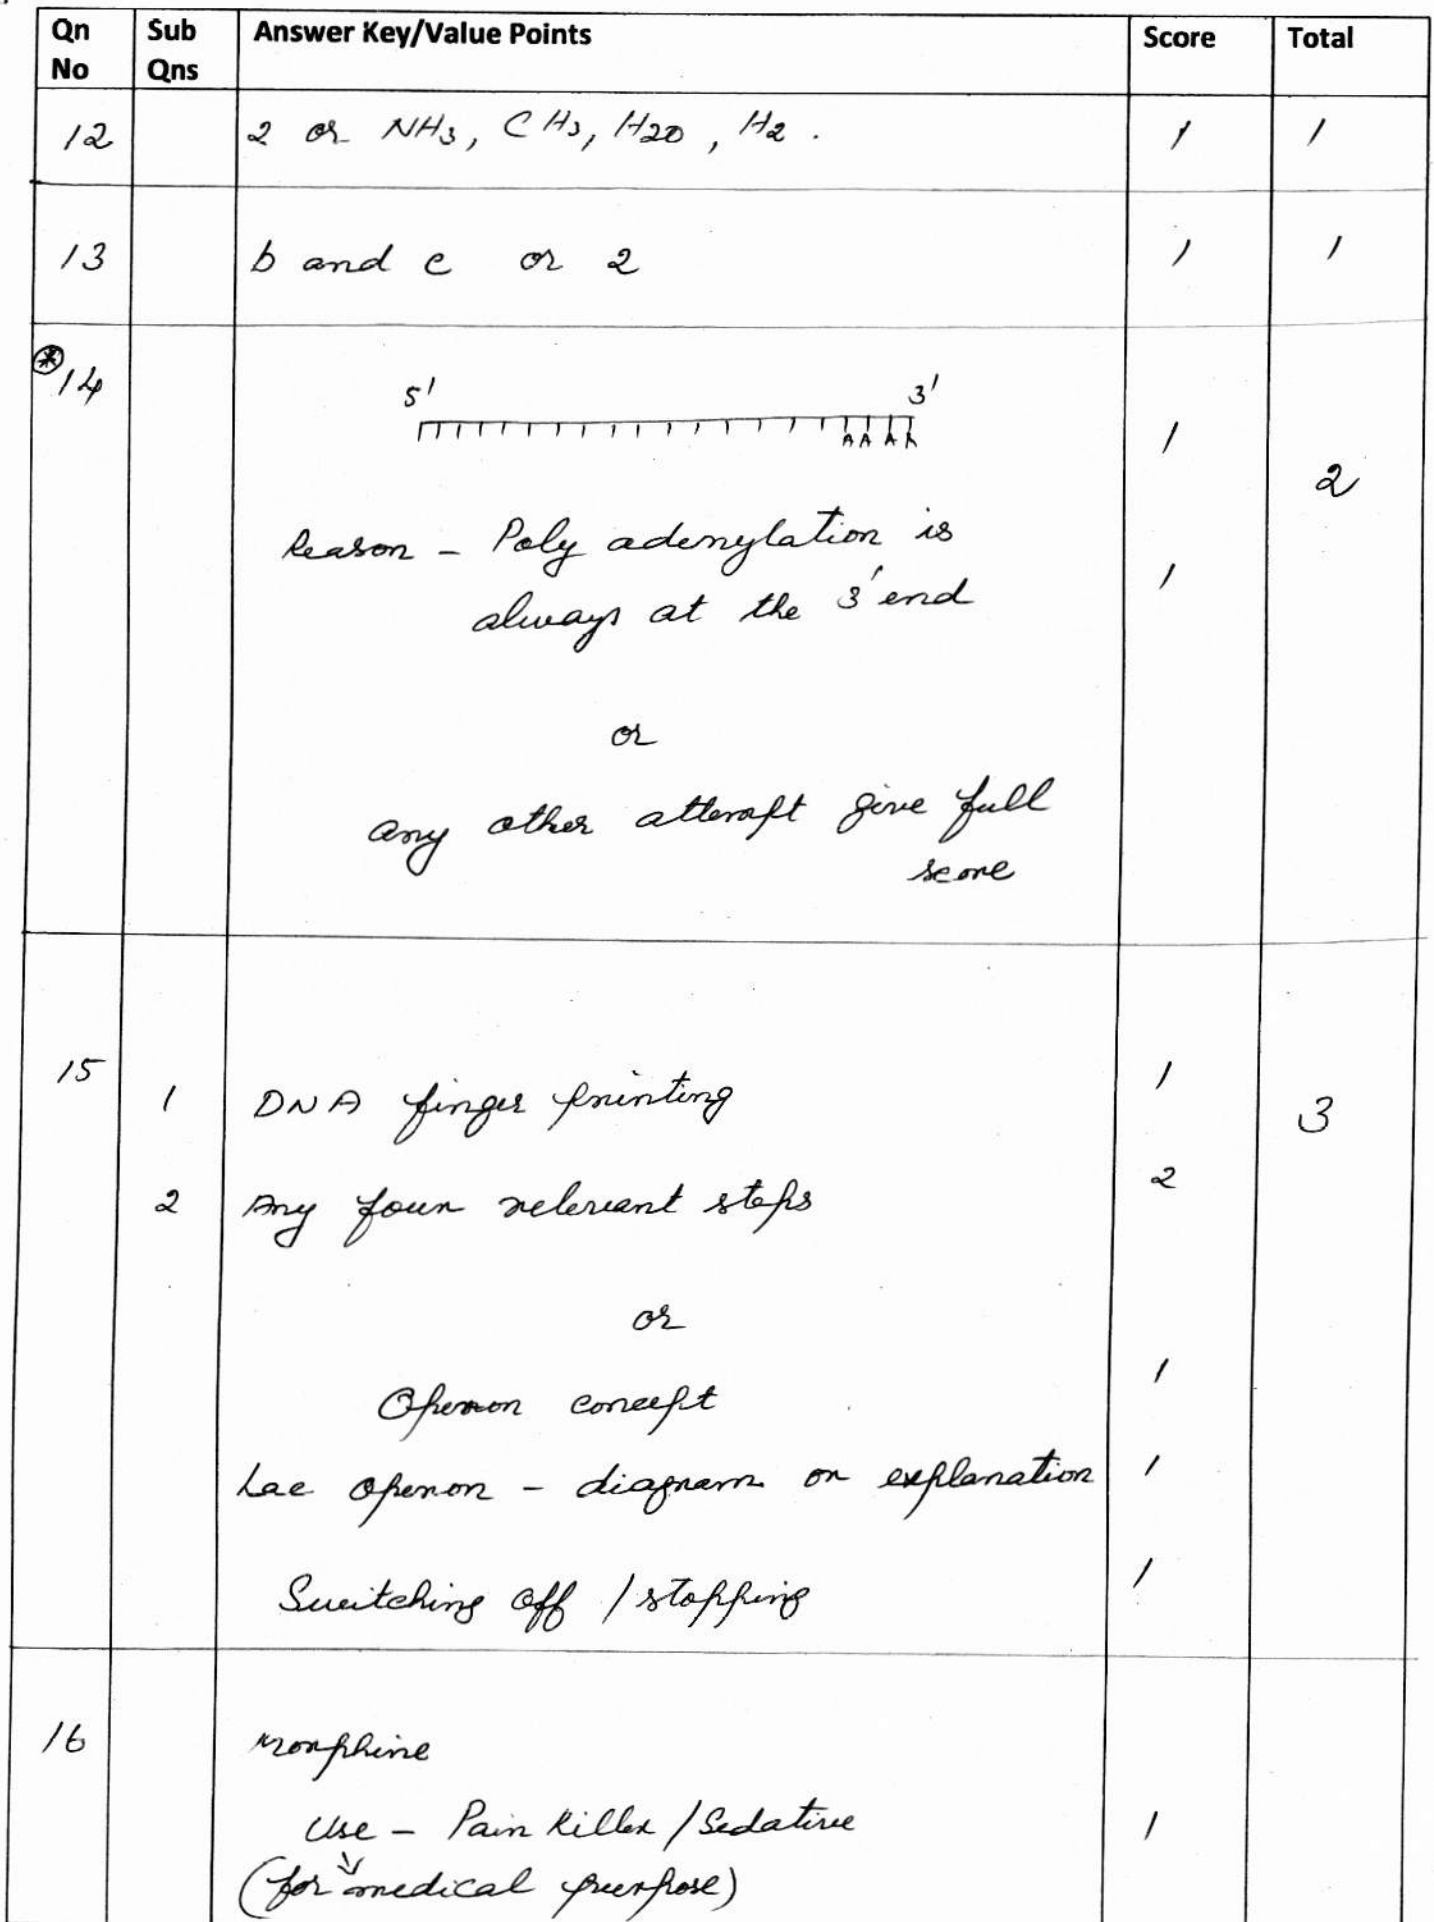 Qn No Sub Qns Answer Key/Value Points Score Total
12 2 or NH3, CH3, H2O, H2. 1 1
13 b and c or 2 1 1
* 14
5' 3'
A A A A 1
2
Reason - Poly adenylation is
always at the 3' end 1
or
any other attempt give full
score
15 1 DNA finger printing 1 3
2 Any four relevant steps 2
or
Operon concept 1
Lac operon - diagram or explanation 1
Switching off / stopping 1
16 Morphine
Use - Pain killer / Sedative 1
(for medical purpose)